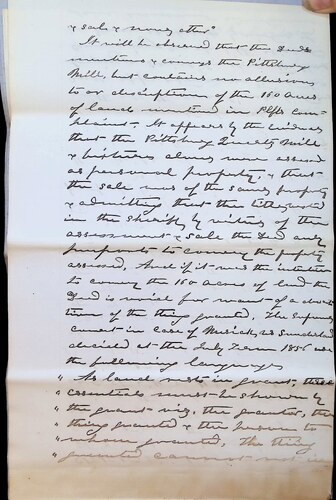 & sale & none other"
It will be observed that this Deed
mentions & conveys the Pittsburg
Mill, but contains no allusions
to or discription of the 160 acres
of land mentioned in Plffs Com-
plaint. It appears by the evidence
that the Pittsburg Quartz Mill
& fixtures alone were assessed
as personal property, & that
the sale was of the same property
& admitting that the title vested
in the Sheriff by virtue of the
assessment & sale the Deed only
purports to convey the property
assessed. And if it was the intention
to convey the 160 acres of land the
Deed is void for want of a descrip
tion of the thing granted. The Supreme
Court in case of vs Sunderland
decided at the July Term 1856 uses
the following language
" As land rests in grant three
" essentials must be shown by
" the grant viz, the grantor, the
" thing granted & the person to
" whom granted, the thing
" granted cannot rest in